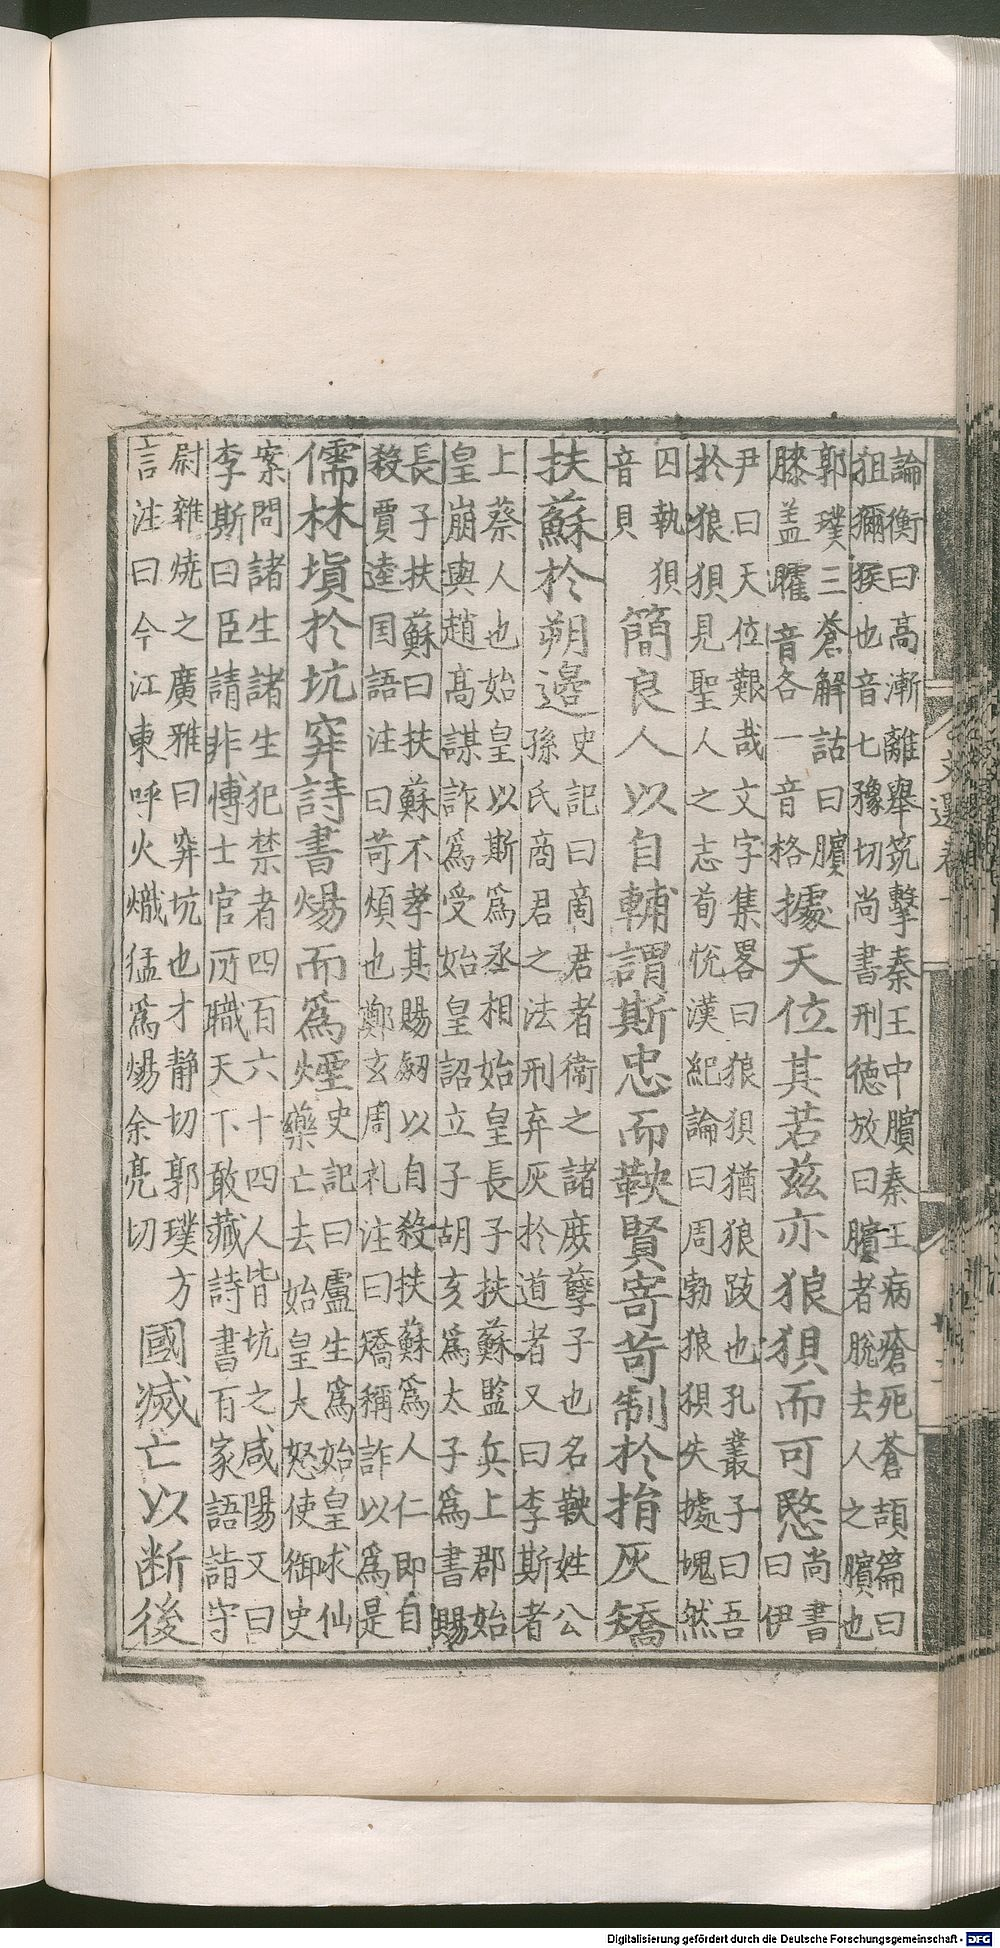 論衡曰高漸離舉筑擊秦王中臏秦王病瘡死蒼頡篇曰
狙獼猴也音七豫切尚書刑徳放曰臏者脫去人之臏也
郭璞三蒼解詁曰臏
膝盖曜音各一音格
據天位其若兹亦狼狽而可愍
尚書
曰伊
尹曰天位艱哉文字集畧曰狼狽猶狼跋也孔叢子曰吾
於狼狽見聖人之志荀悅漢紀論曰周勃狼狽失據塊然
囚執狽
音貝
簡良人以自輔謂斯忠而鞅賢寄苛制於捎灰矯
扶蘇於朔邉
史記曰啇君者衞之諸庶孽子也名鞅姓公
孫氏商君之法刑弃灰於道者又曰李斯者
上蔡人也始皇以斯爲丞相始皇長子扶蘇監兵上郡始
皇崩與趙高謀詐爲受始皇詔立子胡亥爲太子爲書賜
長子扶蘇曰扶蘇不孝其賜劒以自殺扶蘇爲人仁即自
殺賈逵国語注曰苛煩也鄭玄周礼注曰矯稱詐以爲是
儒林塡於坑穽詩書煬而爲煙
史記曰盧生爲始皇求仙
藥亡去始皇大怒使御史
案問諸生諸生犯禁者四百六十四人皆坑之咸陽又曰
李斯曰臣請非愽士官所職天下敢藏詩書百家語詣守
尉雜燒之廣雅曰穽坑也才静切郭璞方
言注曰今江東呼火熾猛爲煬余亮切
國滅亡以断後
Digitalisierung gefördert durch die Deutsche Forschungsgemeinschaft - DFG